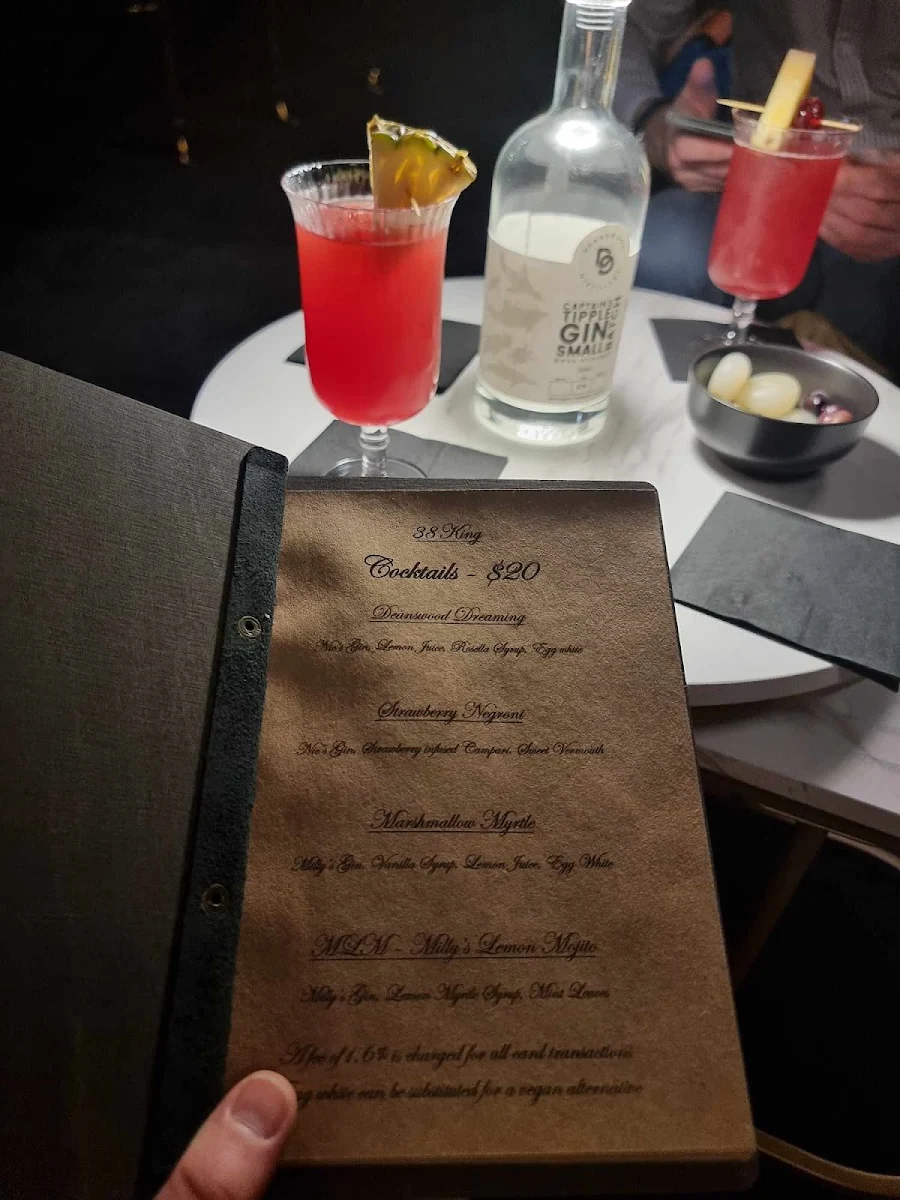 CAPTAINS
TIPPLE
GIN
SMALL
BATCH
38 King
Cocktails - $20
Deanswood Dreaming
Nic's Gin, Lemon Juice, Rosella Syrup, Egg white
Strawberry Negroni
Nic's Gin, Strawberry infused Campari, Sweet Vermouth
Marshmallow Myrtle
Milly's Gin, Vanilla Syrup, Lemon Juice, Egg White
MLM - Milly's Lemon Mojito
Milly's Gin, Lemon Myrtle Syrup, Mint Leaves
A fee of 1.6% is charged for all card transactions
white can be substituted for a vegan alternative